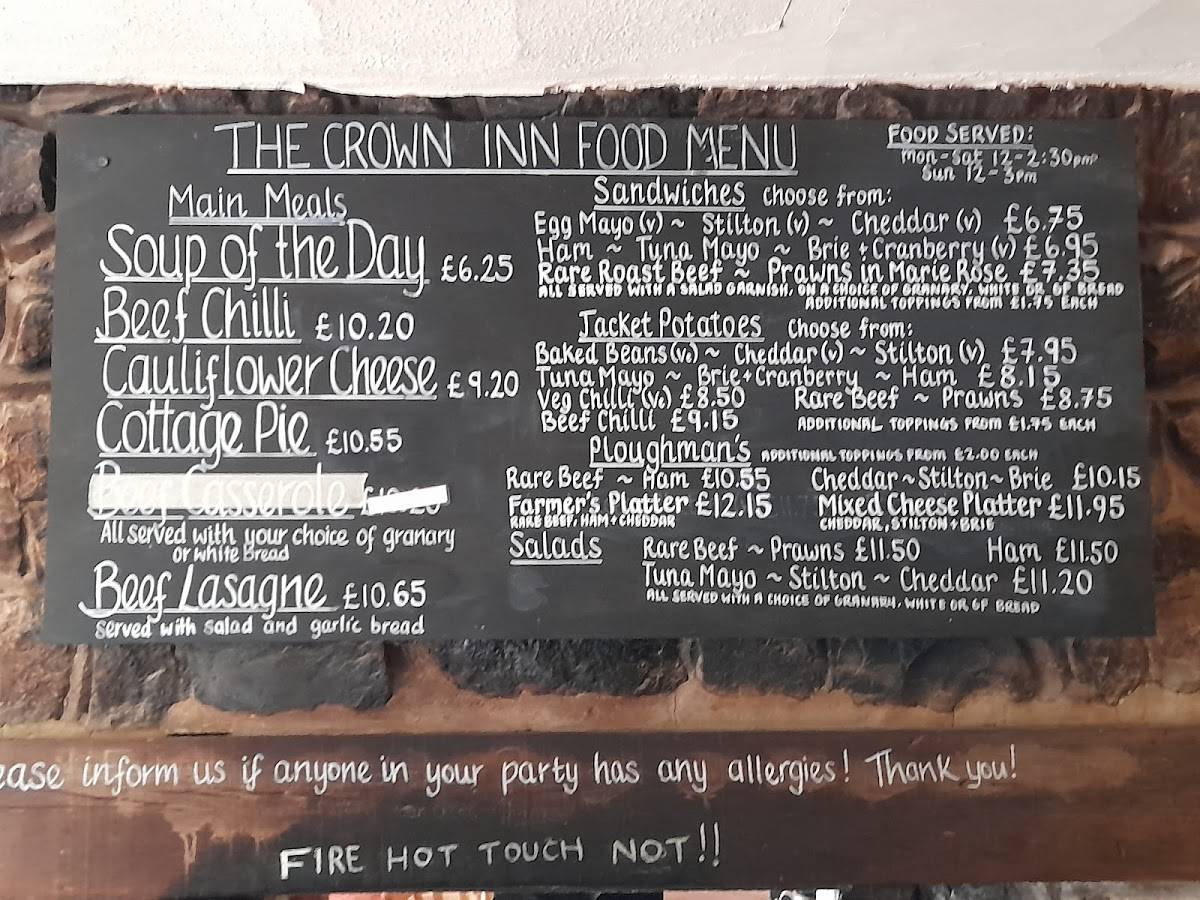 THE CROWN INN FOOD MENU
FOOD SERVED:
Mon-Sat 12-2:30pm
Sun 12-3pm
Main Meals
Soup of the Day £6.25
Beef Chilli £10.20
Cauliflower Cheese £9.20
Cottage Pie £10.55
Beef Casserole
All served with your choice of granary
or white Bread
Beef Lasagne £10.65
served with salad and garlic bread
Sandwiches choose from:
Egg Mayo (v) ~ Stilton (v) ~ Cheddar (v) £6.75
Ham ~ Tuna Mayo ~ Brie + Cranberry (v) £6.95
Rare Roast Beef ~ Prawns in Marie Rose £7.35
ALL SERVED WITH A SALAD GARNISH, ON A CHOICE OF GRANARY, WHITE OR GF BREAD
ADDITIONAL TOPPINGS FROM £1.75 EACH
Jacket Potatoes choose from:
Baked Beans (ve) ~ Cheddar (v) ~ Stilton (v) £7.95
Tuna Mayo ~ Brie+Cranberry ~ Ham £8.15
Veg Chilli (ve) £8.50 Rare Beef ~ Prawns £8.75
Beef Chilli £9.15 ADDITIONAL TOPPINGS FROM £1.75 EACH
Ploughman's ADDITIONAL TOPPINGS FROM £2.00 EACH
Rare Beef ~ Ham £10.55 Cheddar ~ Stilton ~ Brie £10.15
Farmer's Platter £12.15 Mixed Cheese Platter £11.95
RARE BEEF, HAM + CHEDDAR CHEDDAR, STILTON + BRIE
Salads Rare Beef ~ Prawns £11.50 Ham £11.50
Tuna Mayo ~ Stilton ~ Cheddar £11.20
ALL SERVED WITH A CHOICE OF GRANARY, WHITE OR GF BREAD
ease inform us if anyone in your party has any allergies! Thank you!
FIRE HOT TOUCH NOT!!